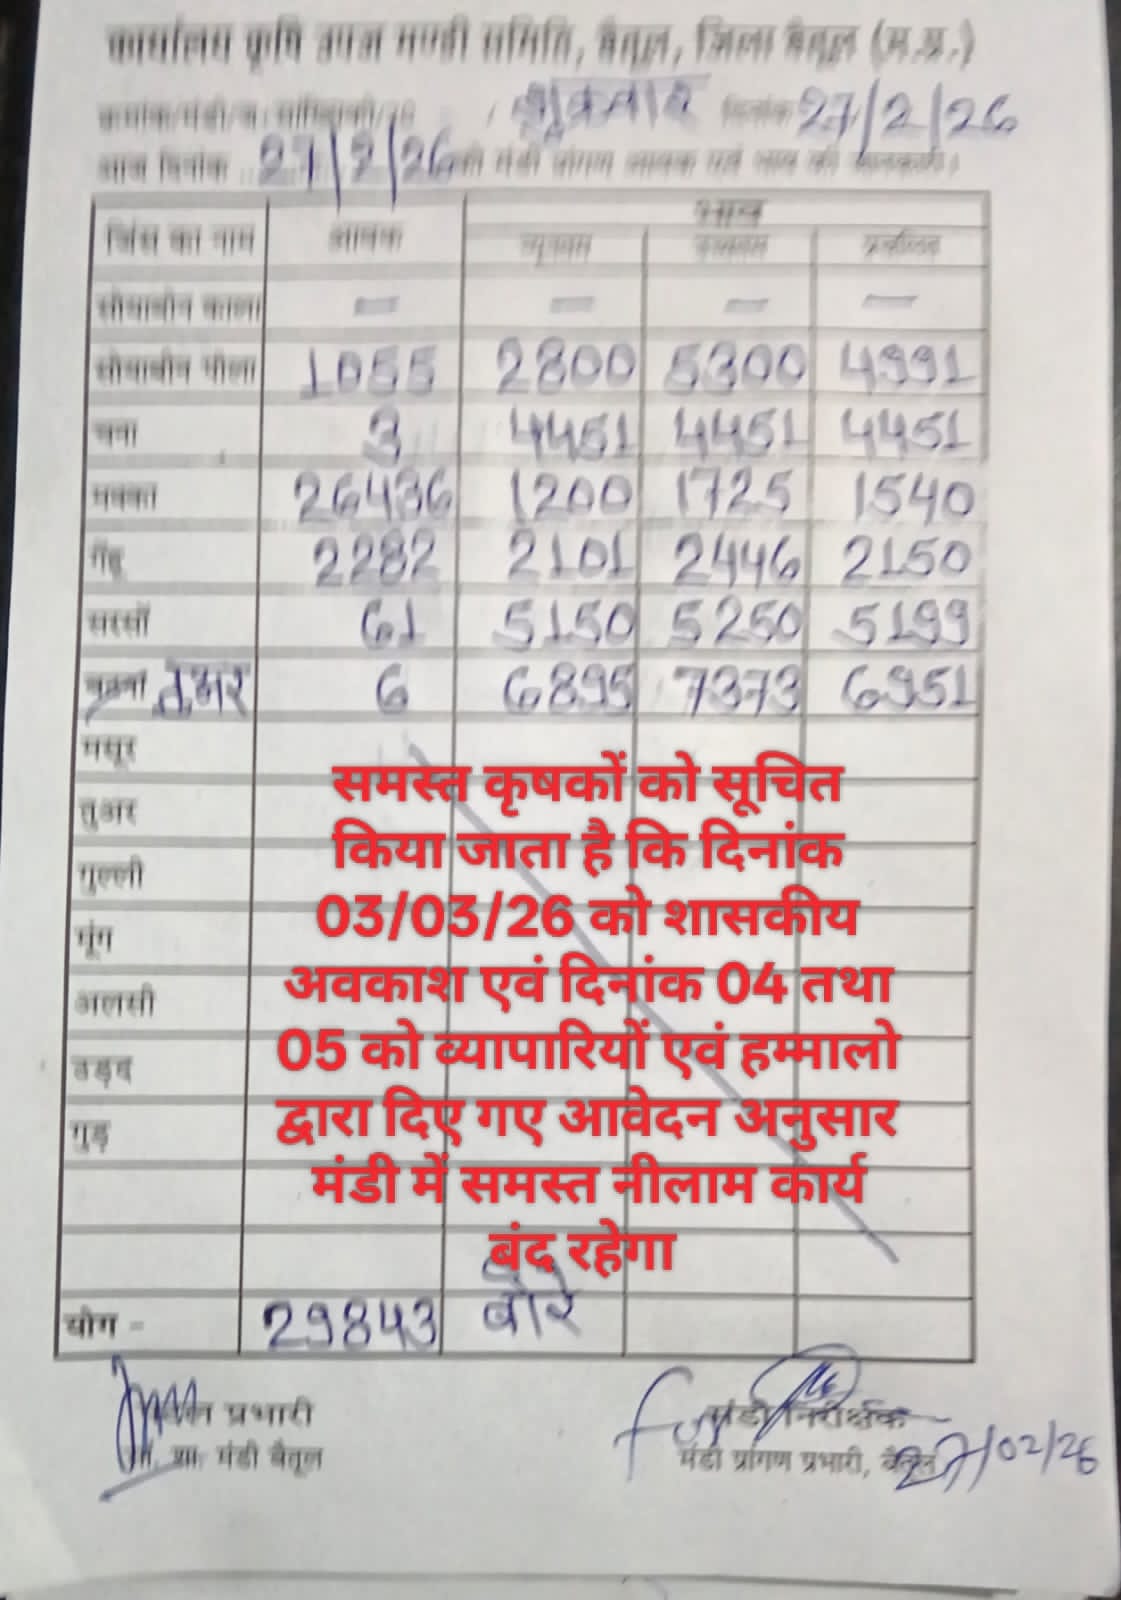 कार्यालय कृषि उपज मण्डी समिति, बैतूल, जिला बैतूल (म.प्र.)
शुक्रवार दिनांक 27/2/26
आज दिनांक 27/2/26 की मंडी प्रांगण आवक एवं भाव की जानकारी।
जिंस का नाम आवक भाव
न्यूनतम उच्चतम प्रचलित
सोयाबीन काला — — — —
सोयाबीन पीला 1055 2800 5300 4991
चना 3 4451 4451 4451
मक्का 26436 1200 1725 1540
गेंहू 2282 2101 2446 2150
सरसों 61 5150 5250 5199
तुअर 6 6895 7373 6951
मसूर
तुअर
गुल्ली
मूंग
अलसी
उड़द
गुड़
समस्त कृषकों को सूचित
किया जाता है कि दिनांक
03/03/26 को शासकीय
अवकाश एवं दिनांक 04 तथा
05 को व्यापारियों एवं हम्मालो
द्वारा दिए गए आवेदन अनुसार
मंडी में समस्त नीलाम कार्य
बंद रहेगा
योग - 29843 बोरे
प्रभारी मंडी निरीक्षक
मंडी बैतूल मंडी प्रांगण प्रभारी, बैतूल
27/02/26